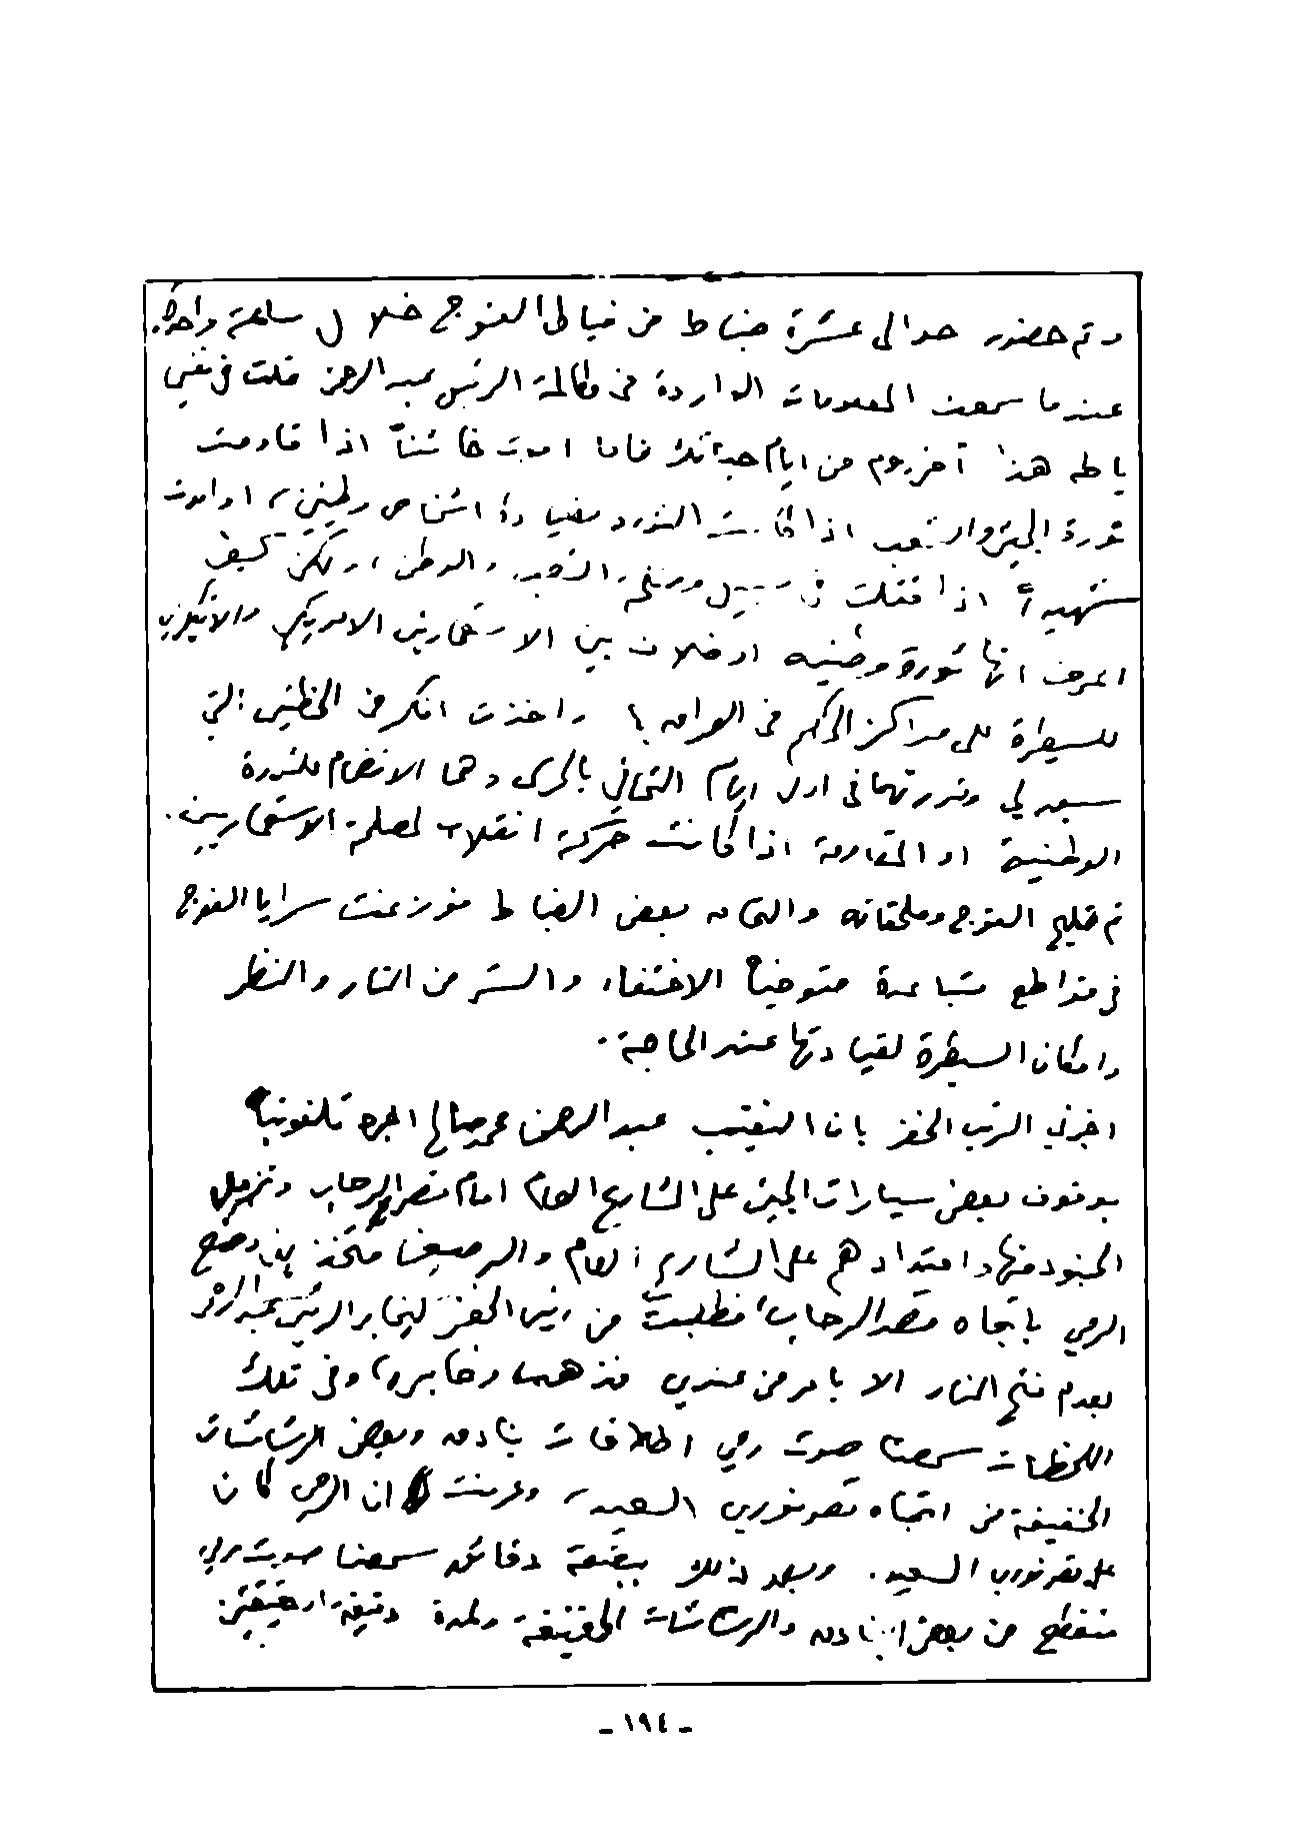 وتم حضور حوالي عشرة ضباط من ضباط الفوج خلال ساعة واحدة.
عندما سمعت المعلومات الواردة من مكالمة الرئيس عبد الرحمن قلت في نفسي
ياطه هذا آخر يوم من ايام حياتك فاما اموت خائناً اذا قاومت
ثورة الجيش والشعب اذا كانت الثورة بقيادة اشخاص وطنيين، او اموت
شهيداً اذا قتلت في سبيل الشعب والوطن، ولكن كيف
اعرف انها ثورة وطنيه او خلافات بين الاستعمارين الامريكي والانكليزي
للسيطرة على مراكز الحكم في العراق؟ واخذت افكر في الخطتين التي
سبق لي وقررتهما في اول ايام التحاقي بالحرس وهما الانضمام للثورة
الوطنية او المقاومة اذا كانت حركة انقلاب لمصلحة الاستعماريين.
تم تسليح الفوج وملحقاته والتحاق بعض الضباط فوزعت سرايا الفوج
في مواضع متباعدة متوخياً الاختفاء والستر من النار والنظر
وامكان السيطرة لقيادتها عند الحاجة.
اخبرني الرئيس الخفر بان النقيب عبد الرحمن محمد صالح اخبره تلفونياً
بوقوف بعض سيارات الجيش على الشارع العام امام قصر الرحاب وترجل
الجنود منها وامتدادهم على الشارع العام والرصيف متخذين وضع
الرمي باتجاه قصر الرحاب، فطلبت من رئيس الخفر ليخابر الرئيس عبد الرحمن
بعدم فتح النار الا بامر من عندي فذهب وخابره، وفي تلك
اللحظات سمعنا صوت رمي اطلاقات بنادق وبعض الرشاشات
الخفيفة من اتجاه قصر نوري السعيد، وعرفت ان الرمي كان
على قصر نوري السعيد. وبعد ذلك ببضعة دقائق سمعنا صوت رمي
متقطع من بعض البنادق والرشاشات الخفيفة ولمدة دقيقة او دقيقتين
- ١٩٤ -